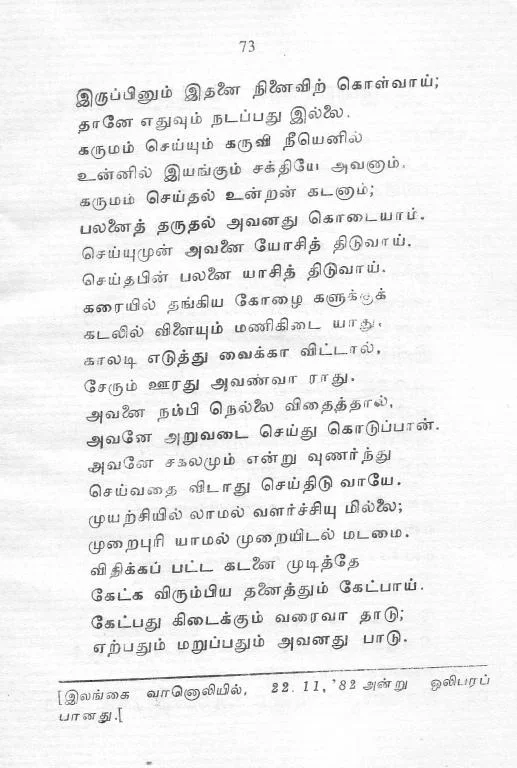 73
இருப்பினும் இதனை நினைவிற் கொள்வாய்;
தானே எதுவும் நடப்பது இல்லை.
கருமம் செய்யும் கருவி நீயெனில்
உன்னில் இயங்கும் சக்தியே அவனும்.
கருமம் செய்தல் உன்றன் கடனும்;
பலனைத் தருதல் அவனது கொடையாம்.
செய்யுமுன் அவனை யோசித் திடுவாய்.
செய்தபின் பலனை யாசித் திடுவாய்.
கரையில் தங்கிய கோழை களுக்குக்
கடலில் விளையும் மணிகிடை யாது.
காலடி எடுத்து வைக்கா விட்டால்,
சேரும் ஊரது அவண்வா ராது.
அவனை நம்பி நெல்லை விதைத்தால்,
அவனே அறுவடை செய்து கொடுப்பான்.
அவனே சகலமும் என்று வுணர்ந்து
செய்வதை விடாது செய்திடு வாயே.
முயற்சியில் லாமல் வளர்ச்சியு மில்லை;
முறைபுரி யாமல் முறையிடல் மடமை.
விதிக்கப் பட்ட கடனை முடித்தே
கேட்க விரும்பிய தனைத்தும் கேட்பாய்.
கேட்பது கிடைக்கும் வரைவா தாடு;
ஏற்பதும் மறுப்பதும் அவனது பாடு.
[இலங்கை வானொலியில், 22. 11, '82 அன்று ஒலிபரப்
பானது.[